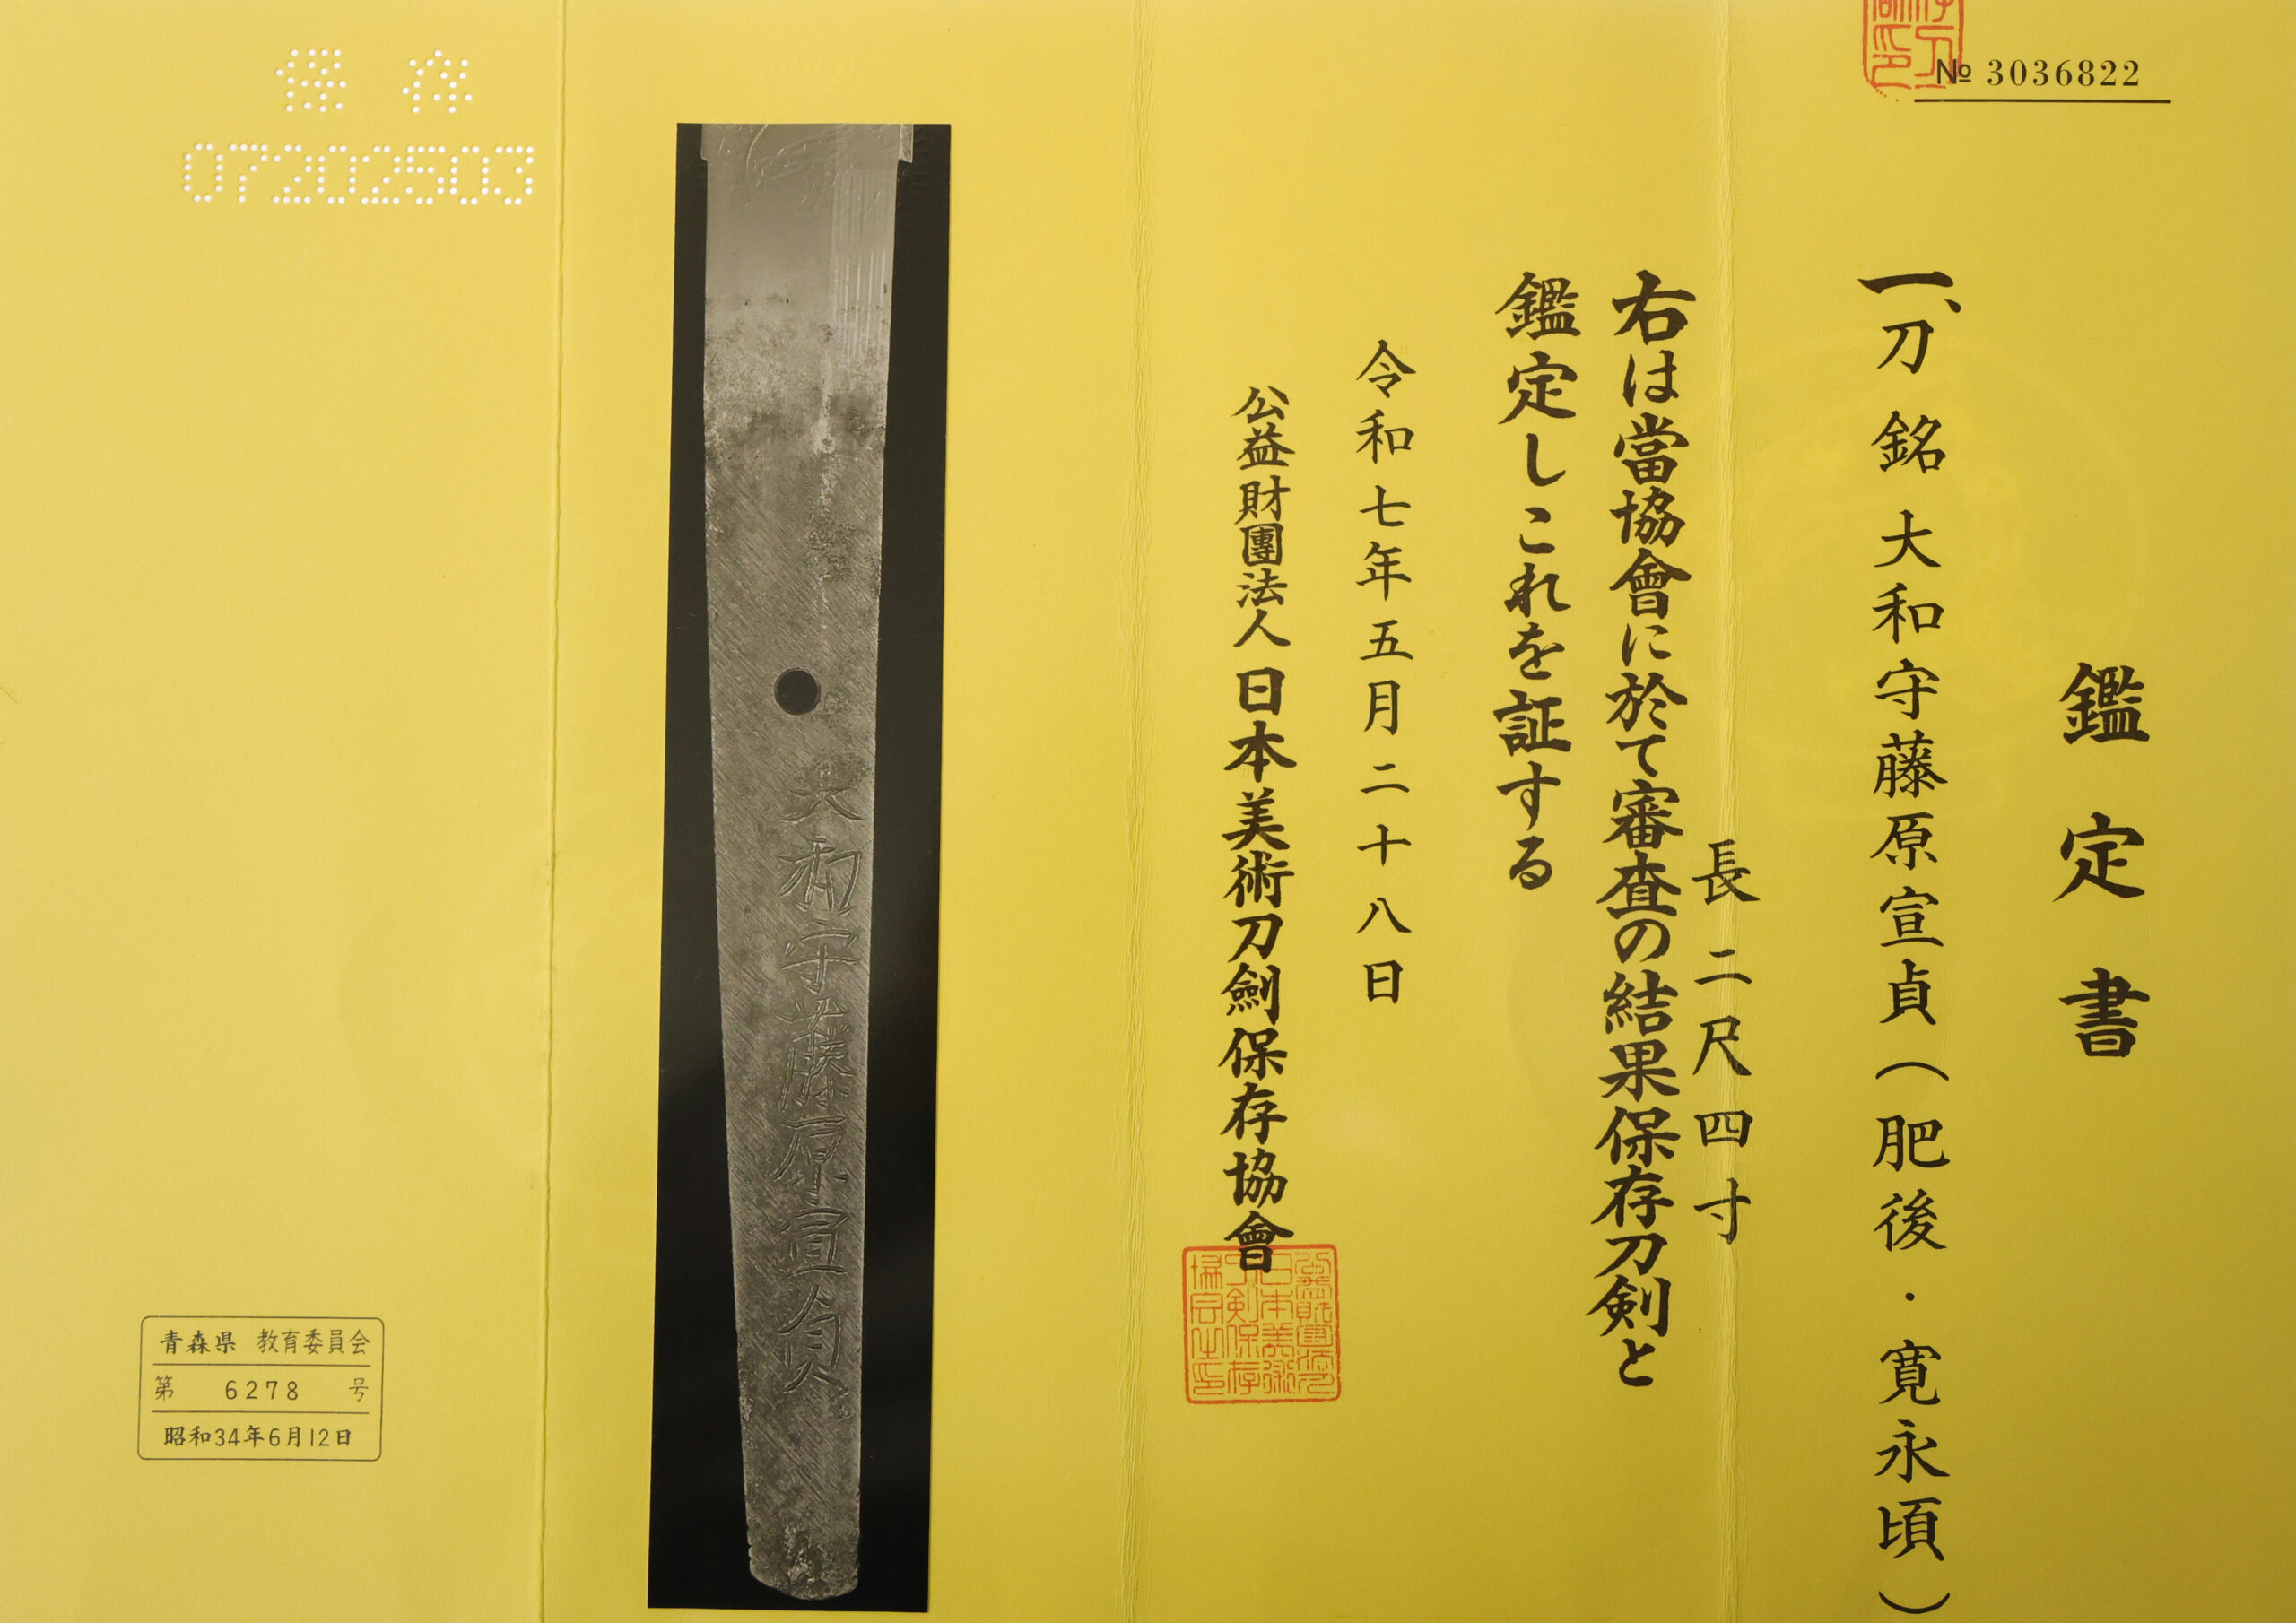 № 3036822
鑑定書
一、刀 銘 大和守藤原宣貞(肥後・寛永頃)
長 二尺四寸
右は當協會に於て審査の結果保存刀剣と
鑑定しこれを証する
令和七年五月二十八日
公益財團法人 日本美術刀劍保存協會
大和守藤原宣貞
保存
07202503
青森県 教育委員会
第 6278 号
昭和34年6月12日